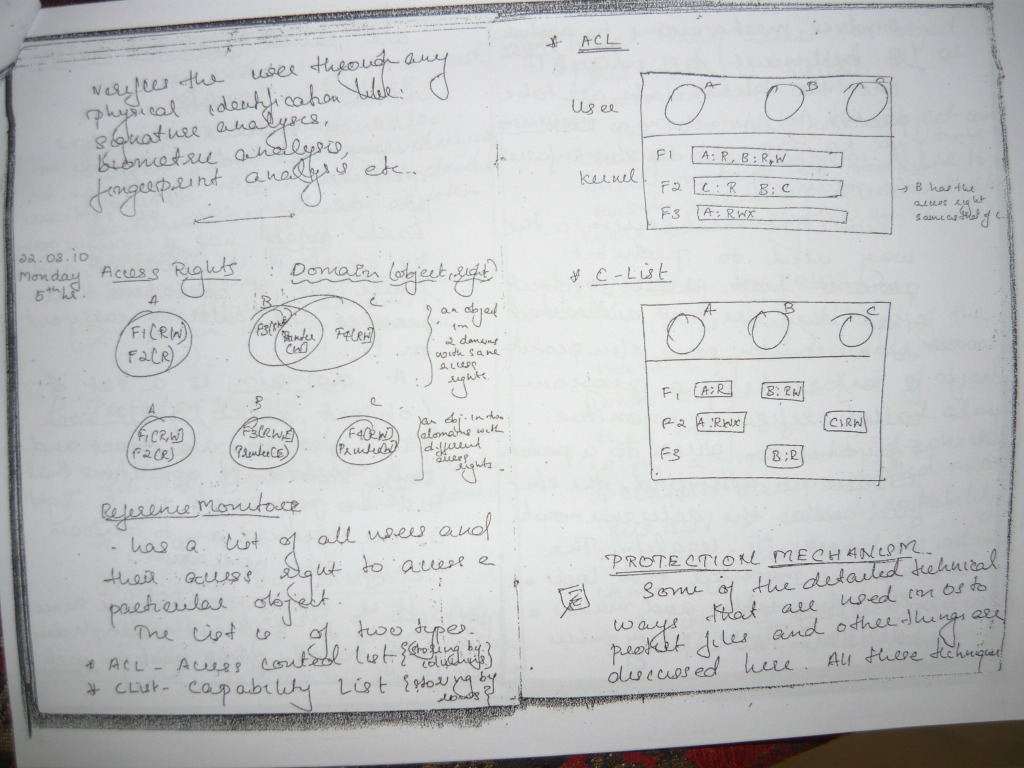 verifies the user through any
physical identification like.
signature analysis,
biometric analysis,
fingerprint analysis etc..
22.03.10
Monday
5th hr.
Access Rights : Domain (object, right)
A B C
F1(RW)
F2(R)
Printer
(W)
F4(RW)
an object
in
2 domains
with same
access
rights.
A B C
F1(RW)
F2(R)
F3(RWE)
Printer(E)
F4(RW)
Printer(W)
an obj. in two
domains with
different
access
rights.
Reference Monitors
- has a list of all users and
their access right to access a
particular object.
The list is of two types.
* ACL - Access control list {storing by
columns}
* CList - Capability List {storing by
rows}
* ACL
User A B C
kernel
F1 A:R, B:R,W
F2 C:R B:C
F3 A:RWX
→ B has the
access right
same as that of C.
* C-List
A B C
F1 A:R B:RW
F2 A:RWX C:RW
F3 B:R
PROTECTION MECHANISM
Some of the detailed technical
ways that are used in OS to
protect files and other things are
discussed here. All these techniques